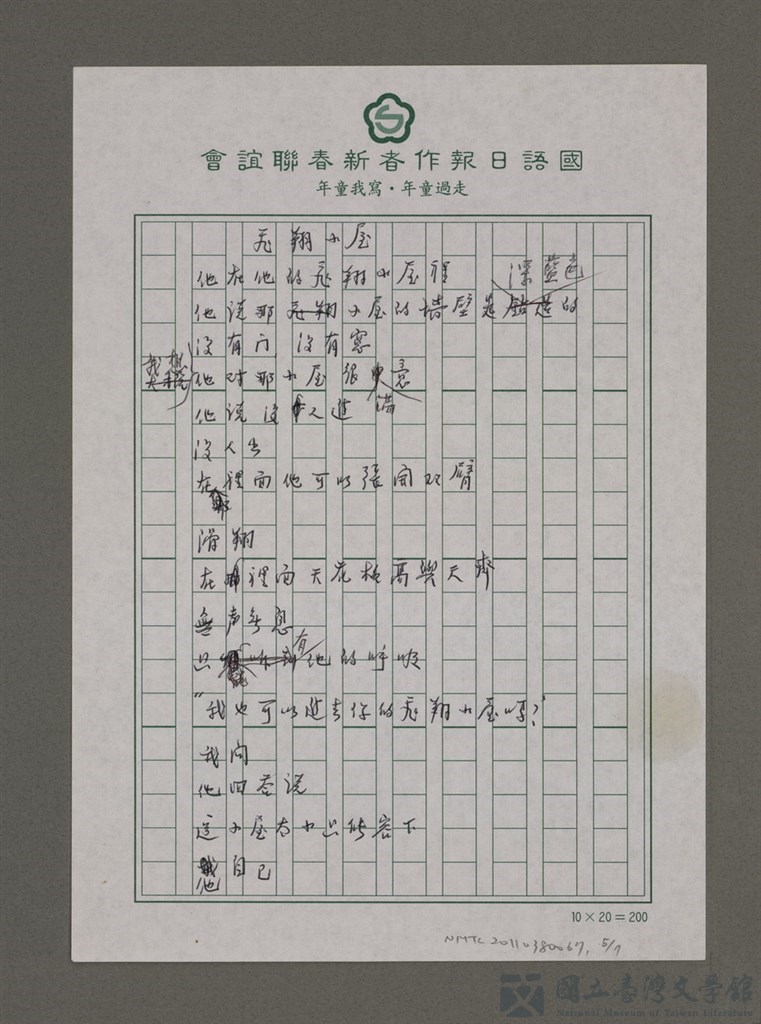 會誼聯春新者作報日語國
年童我寫・年童過走
飛翔小屋
他在他的飛翔小屋裡
深藍色
他說那飛翔小屋的牆壁是鉛造的
沒有门 沒有窓
他对那小屋很 滿意
他說沒人進
沒人出
在裡面他可以張開双臂
滑翔
在裡面天花板高與天齊
無声無息
只有他的呼吸
"我也可以進去你的飛翔小屋嗎?"
我问
他回答说
這小屋太小只能容下
他自己
10×20=200
NMTL20110380067, 5/7
國立臺灣文學館
National Museum of Taiwan Literature